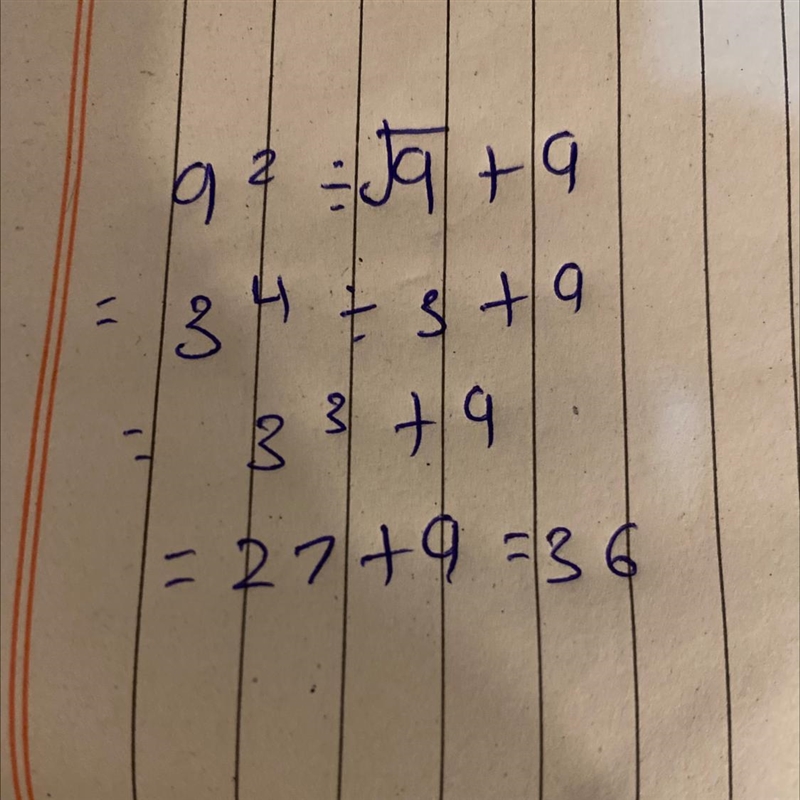 9² ÷ √9 + 9
= 3⁴ ÷ 3 + 9
= 3³ + 9
= 27 + 9 = 36